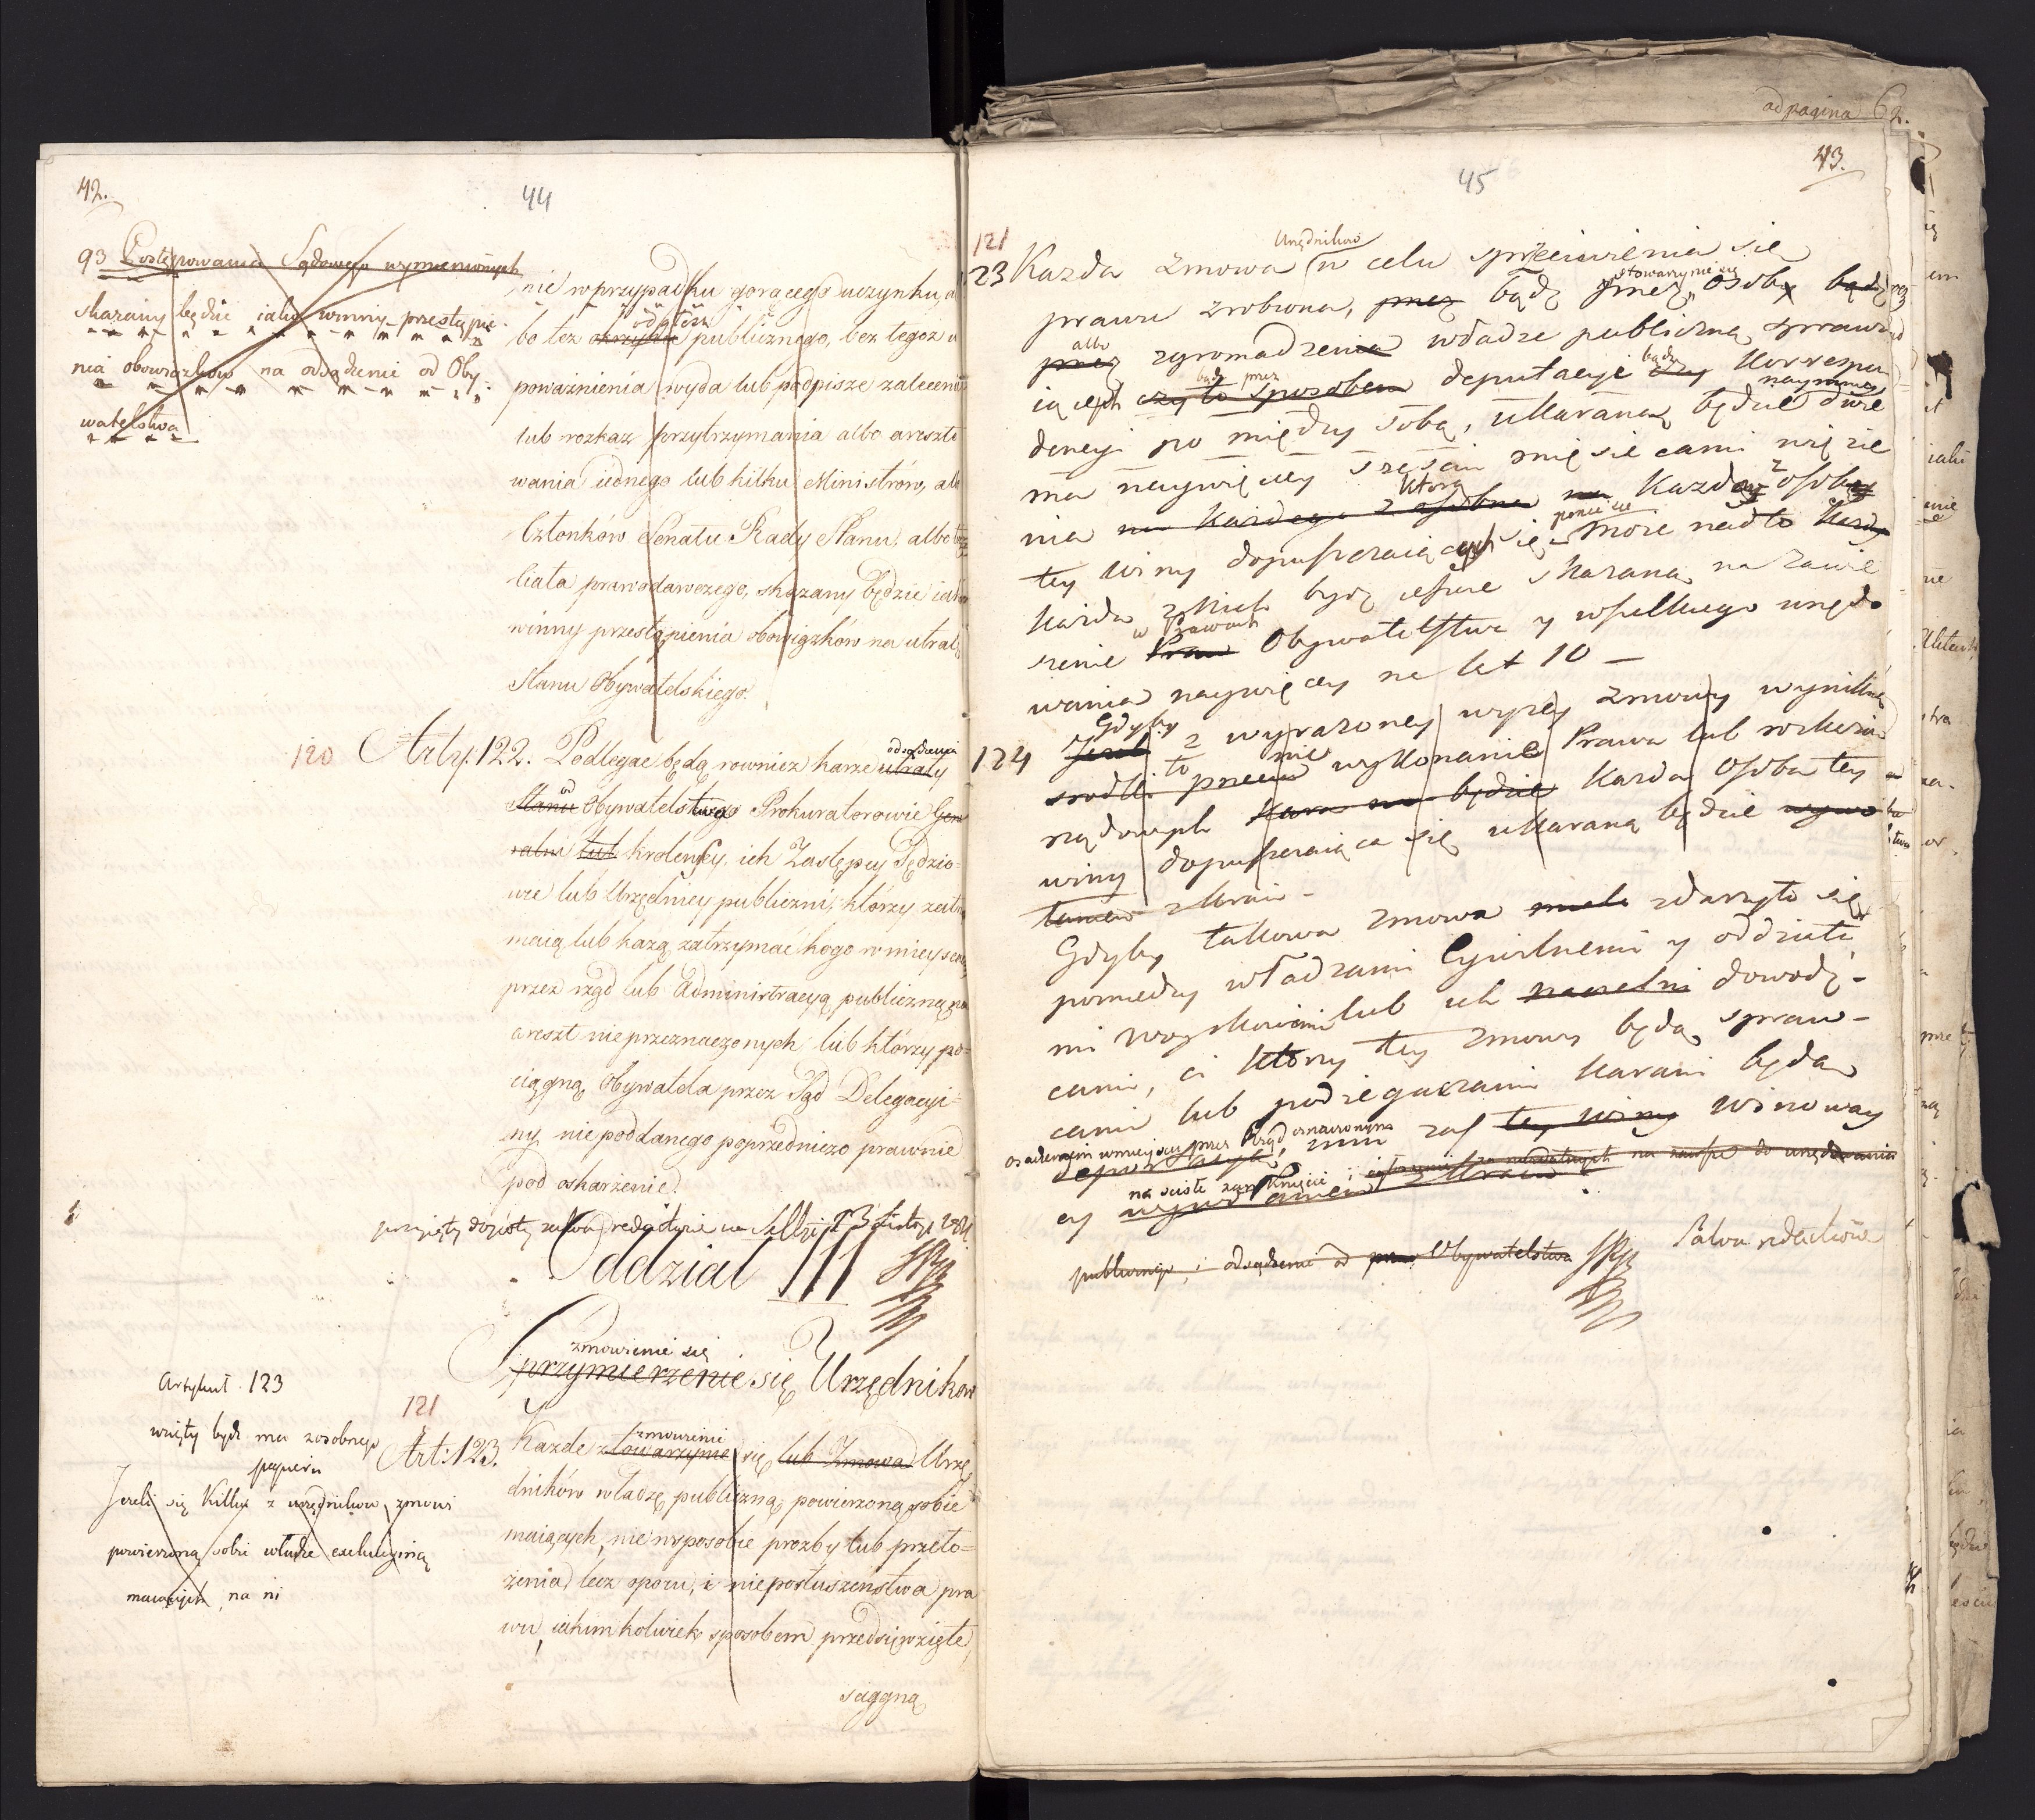 42.
44
93 Postępowania Sądowego wymienionych
skarany będzie iako winny przestąpie-
nia obowiązków na odsądzenie od Oby-
watelstwa
nić w przypadku gorącego uczynku, a
bo też okrzyku odgłosu publicznego, bez tegoż u
poważnienia wyda lub podpisze zalecenie
lub rozkaz przytrzymania albo areszto
wania iednego lub kilku Ministrów, alb
Członków Senatu Rady Stanu, albo
Ciała prawodawczego, skazany będzie iako
winny przestąpienia obowiązków na utratę
Stanu Obywatelskiego.
120 Arty. 122. Podlegać będą również karze utraty odsądzenia
Stanu od Obywatelstwa Prokuratorowie Gene
ralni lub Krolewscy, ich Zastępcy Sędzio-
wie lub Urzędnicy publiczni, którzy zatrz
maią lub każą zatrzymać kogo w mieyscach
przez rząd lub Administracyą publiczną na
areszt nieprzeznaczonych lub którzy po-
ciągną Obywatela przez Sąd Delegacyi-
ny niepoddanego poprzedniczo prawnie
pod oskarżenie.
Oddział III
zmowienie się
Sprzymierzenie się Urzędników
Artykuł 123
wzięty bydź ma z osobnego
papieru
Jeżeli się kilku z urzędników zmowi
powierzoną sobie władzę exekucyiną
maiących, na ni
121
Art: 123. Każde stowarzyszenie zmowienie się lub Zmowa Urzę
dników władzę publiczną powierzoną sobie
maiących, nie w sposobie prozby lub przeło-
żenia, lecz oporu, i nieposłuszeństwa pra
wu, iakimkolwiek sposobem przedsięwzięte,
ściągną
ad pagina 62.
43.
45
121
Urzędników
23 Każda zmowa w celu sprzeciwienia się
prawu zrobiona, przez bądź przez stowarzyszenie się osoby bądź
przez albo zgromadzenia władzę publiczną sprawu
iących czy to sposobem bądź przez deputacyi czy bądź korrespon
dencyi po między sobą, ukarana będzie naymniey dwie
ma naywięcey sześciu miesiącami więzie
nia na każdego z osobna która na każda z osoby
tey winy dopuszczaiących się poniesie może nadto każdy
każda z nich bydź ieszcze skarana na zawie
szenie Praw w Prawach Obywatelstwa y wszelkiego urzędo
wania naywięcey na lat 10 —
124 Jeżeli Gdyby z wyrażoney wyżey zmowy wynikły
srodki to przeciw nie wykonanie Prawa lub rozkazu
rządowych kara na będzie każda osoba tey
winy dopuszczaiąca się ukaraną będzie wywo
łaniem z kraiu —
Gdyby takowa zmowa miała zdarzyła się
pomiędzy władzami Cywilnemi y oddziała
mi woyskowemi lub ich naczelni dowodz-
cami, ci którzy tey zmowy będą spraw-
cami lub podżegaczami karani będą
osadzeniem w mieyscu przez Rząd oznaczonym
zaś tey winy winowaycy
na ściśłe zamknięcie i na zawsze do urzędowania
cy wywołaniem z kraiu.
publicznego, i odsądzenie od praw Obywatelstwa
Salva redactione